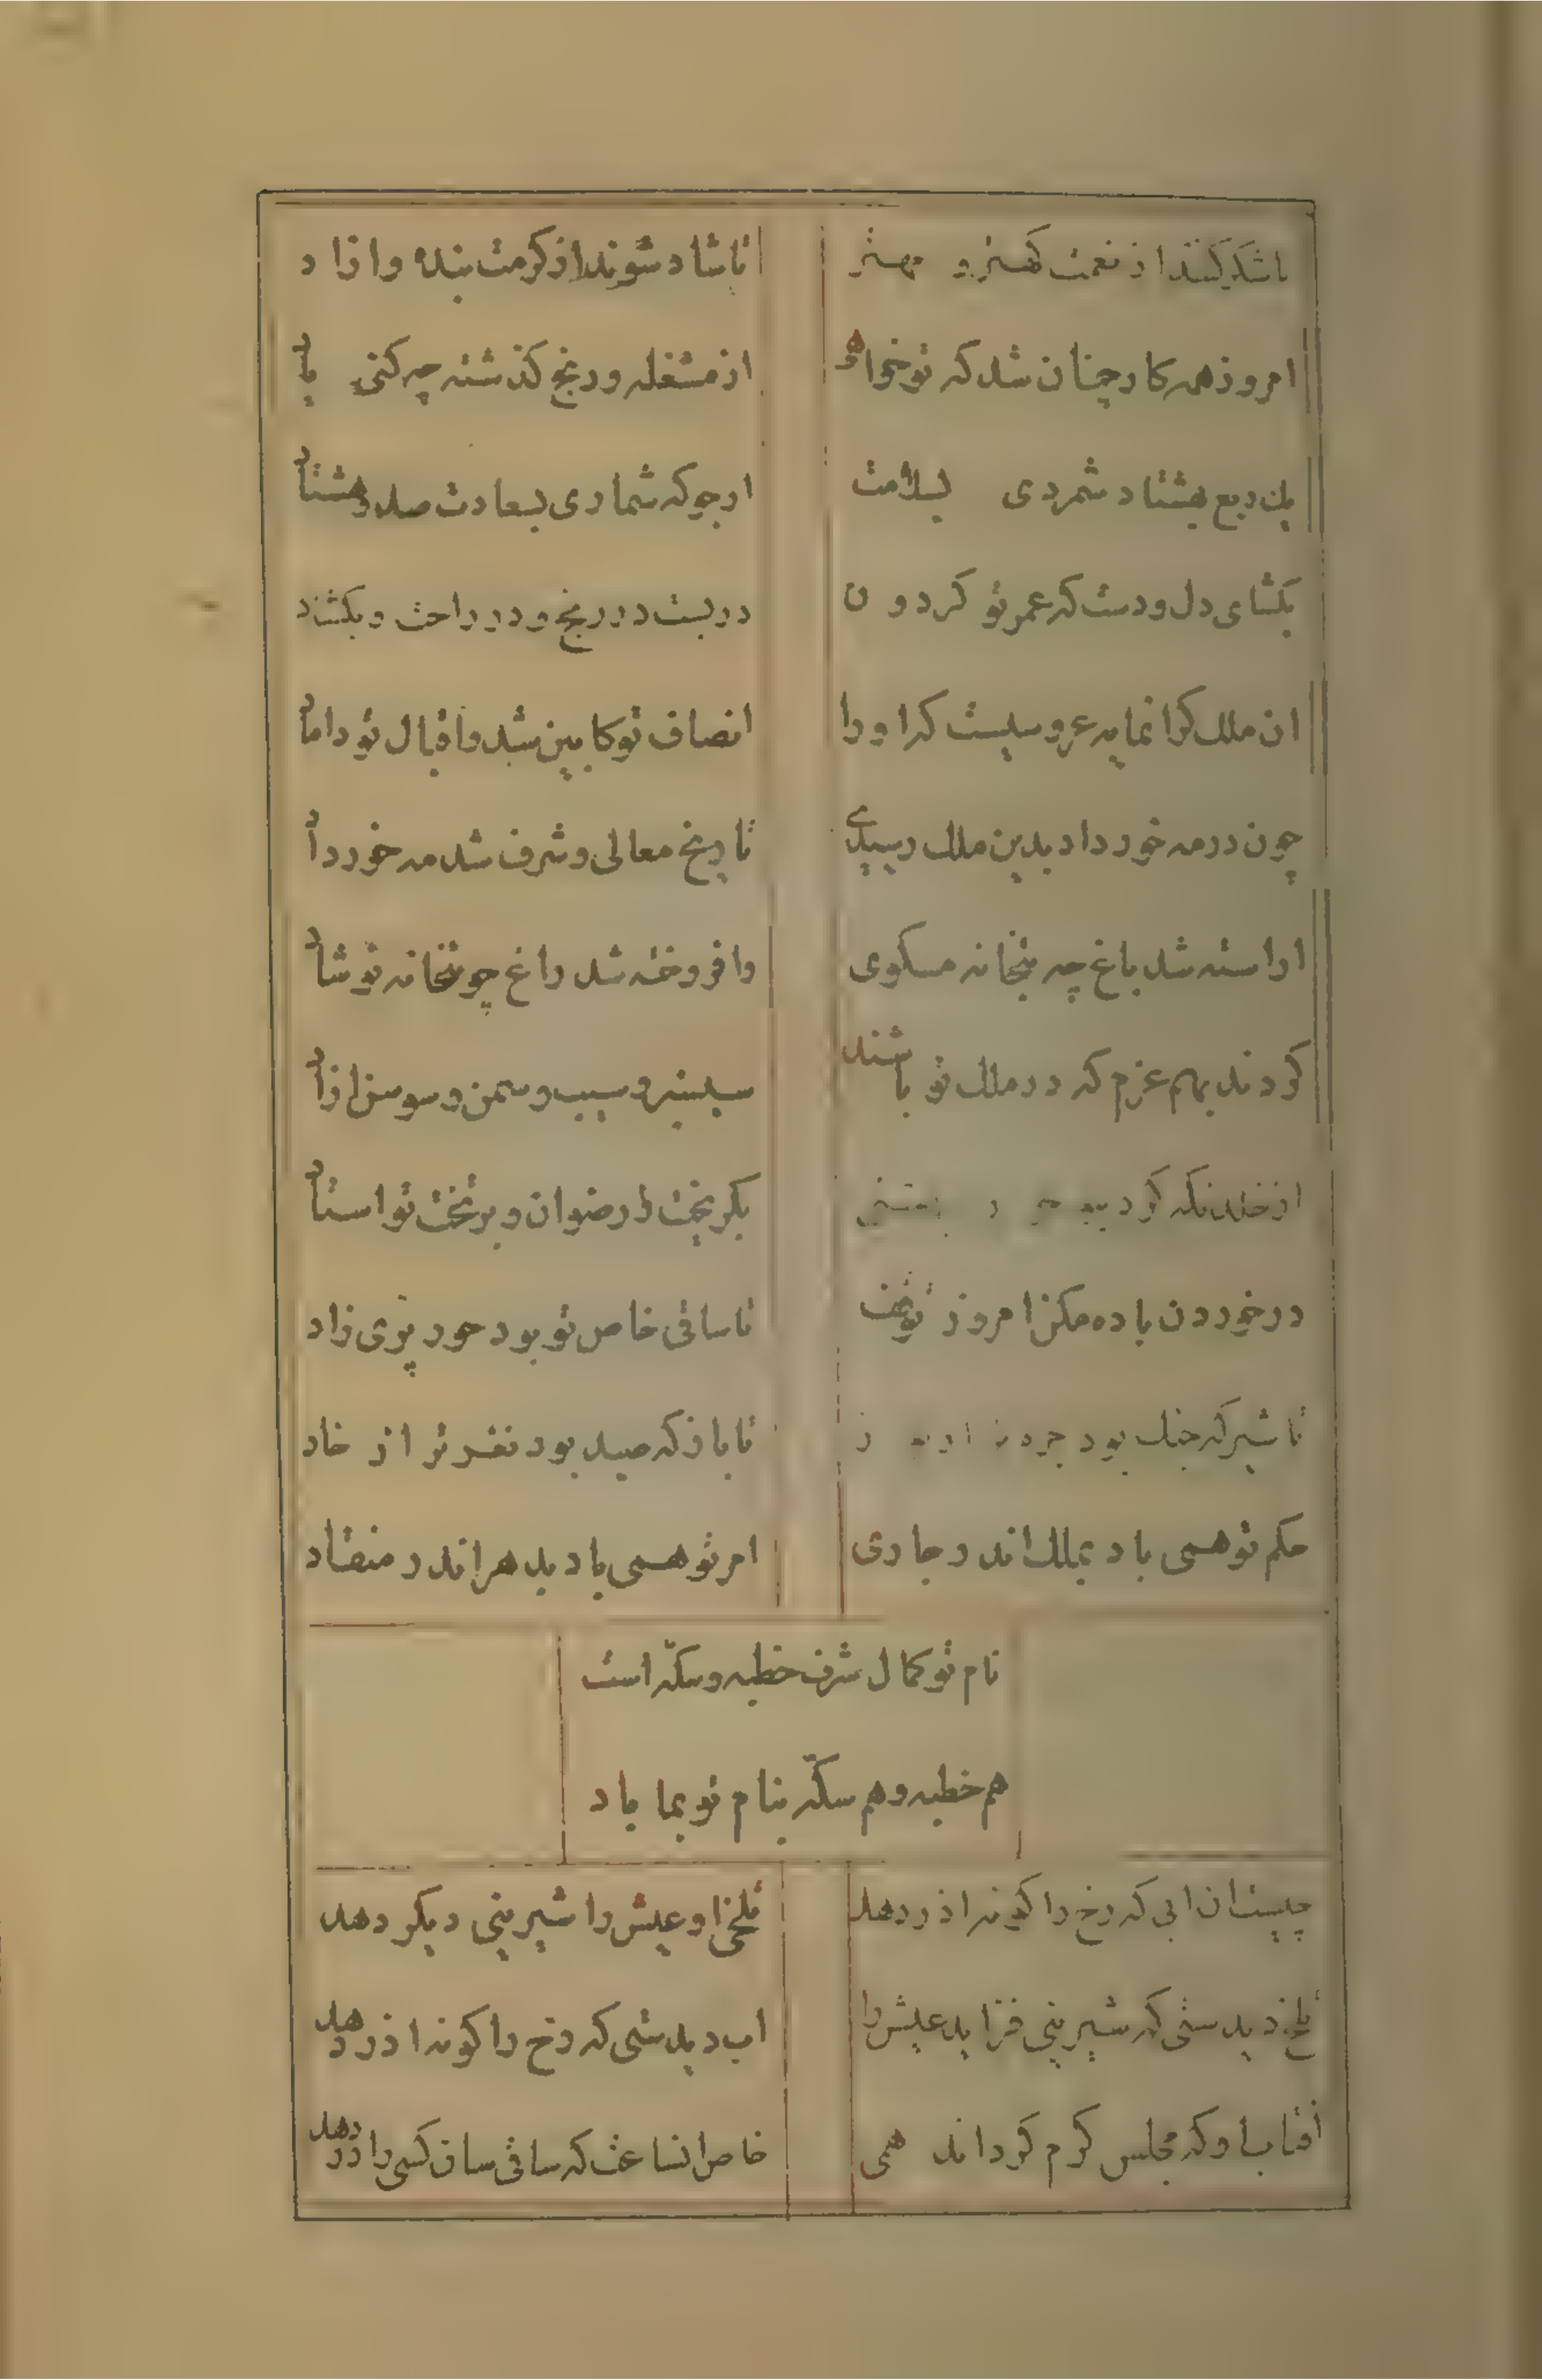 تا شکر کنند از نعمت کهتر و مهتر
تا شاد شوند از کرمت بنده و ازاد
امروز همه کار چنان شد که تو خواهی
از مشغله و رنج کذشته چه کنی یاد
یک ربع هشتاد شمردی بسلامت
ارجو که شماری بسعادت صد و هشتاد
بکشای دل و دست که عمر تو کردون
دربست در رنج و در راحت و بکشاد
ان ملک کرانمایه عروسیست که او را
انصاف تو کابین شد و اقبال تو داماد
چون در مه خورداد بدین ملک رسیدی
تاریخ معالی و شرف شد مه خورداد
اراسته شد باغ چه بتخانه مسکوی
وافروخته شد راغ چو بتخانه نوشاد
کردند بهم عزم که در ملک تو باشند
سیسنبر و سیب و سمن و سوسن ازاد
از خلد نکه کرد بهشتی
بکریخت ز رضوان و بر تخت تو استاد
در خوردن باده مکن امروز توقف
تا ساقی خاص تو بود حور پری زاد
تا شیر که جنک بود
تا باز که صید بود نغزتر از خاد
حکم تو همی باد بملک اندر جاری
امر تو همی باد بدهر اندر منقاد
نام تو کمال شرف خطبه و سکّه است
هم خطبه و هم سکّه بنام تو بما باد
چیست ان ابی که رخ را کونه اذر دهد
تلخی او عیش را شیرینی دیکر دهد
تلخ دیدستی که شیرینی فزاید عیش را
اب دیدستی که رخ را کونه اذر دهد
افتاب او که مجلس کرم کرداند همی
خاص انساعت که ساقی ساق کسی را در دهد